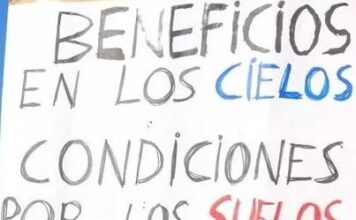 BENEFICIOS
EN LOS CIELOS
CONDICIONES
POR LOS SUELOS